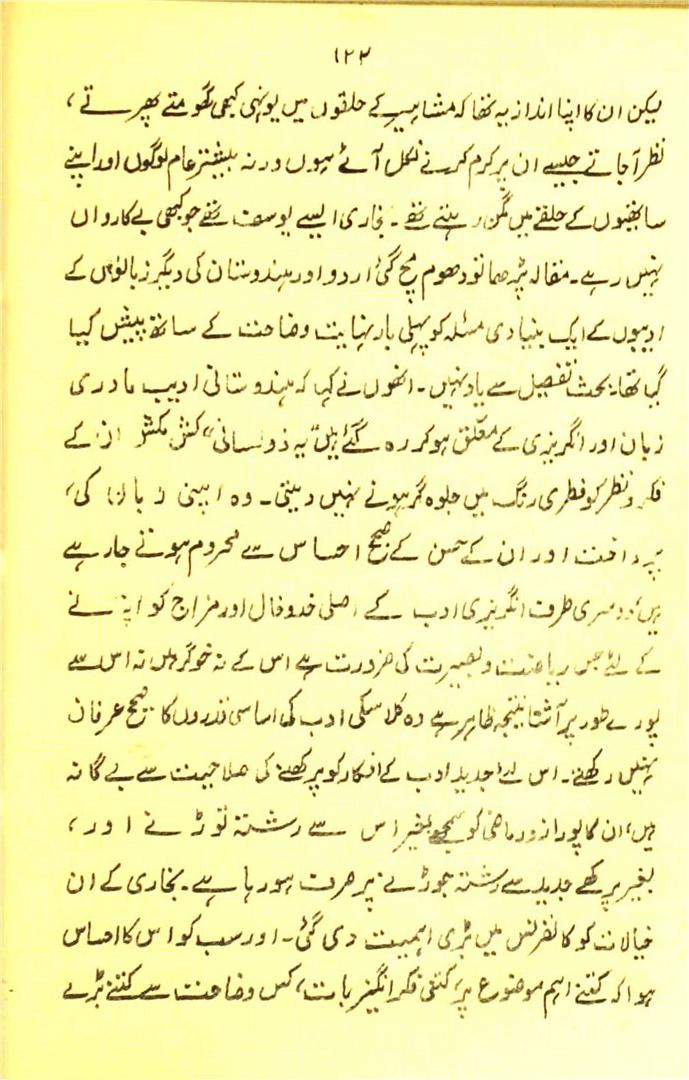 ۱۲۳
لیکن ان کا اپنا انداز یہ تھا کہ مشاہیر کے حلقوں میں یونہی کبھی گھومتے پھرتے ،
نظر آجاتے جیسے ان پر کرم کرنے نکل آئے ہوں ورنہ بیشتر عام لوگوں اور اپنے
ساتھیوں کے حلقے میں مگن رہتے تھے ۔ بخاری ایسے یوسف تھے جو کبھی بے کارواں
نہیں رہے ۔ مقالہ پڑھا تو دھوم مچ گئی اردو اور ہندوستان کی دیگر زبانوں کے
ادیبوں کے ایک بنیادی مسئلہ کو پہلی بار نہایت وضاحت کے ساتھ پیش کیا
گیا تھا۔ بحث تفصیل سے یاد نہیں ۔ انھوں نے کہا کہ ہندوستانی ادیب مادری
زبان اور انگریزی کے معلق ہو کر رہ گئے ہیں "یہ ذولسانی" کش مکش ان کے
فکر و نظر کو فطری رنگ میں جلوہ گر ہونے نہیں دیتی ۔ وہ اپنی زبان کی ،
پرداخت اور ان کے حسن کے صحیح احساس سے محروم ہوتے جارہے
ہیں ، دوسری طرف انگریزی ادب کے اصلی خدوخال اور مزاج کو اپنانے
کے لئے جس ریاضت و بصیرت کی ضرورت ہے اس کے نہ خوگر ہیں نہ اس سے
پورے طور پر آشنا نتیجہ ظاہر ہے وہ کلاسکی ادب کی اساسی قدروں کا صحیح عرفان
نہیں رکھتے ۔ اس لئے جدید ادب کے افکار کو پرکھنے کی صلاحیت سے بے گانہ
ہیں ، ان کا پورا زور ماضی کو سمجھے بغیر اس سے رشتہ توڑنے اور ،
بغیر پرکھے جدید سے رشتہ جوڑنے پر صرف ہو رہا ہے ۔ بخاری کے ان
خیالات کو کانفرنس میں بڑی اہمیت دی گئی ۔ اور سب کو اس کا احساس
ہوا کہ کتنے اہم موضوع پر ، کتنی فکر انگیز بات ، کس وضاحت سے کتنے بڑے